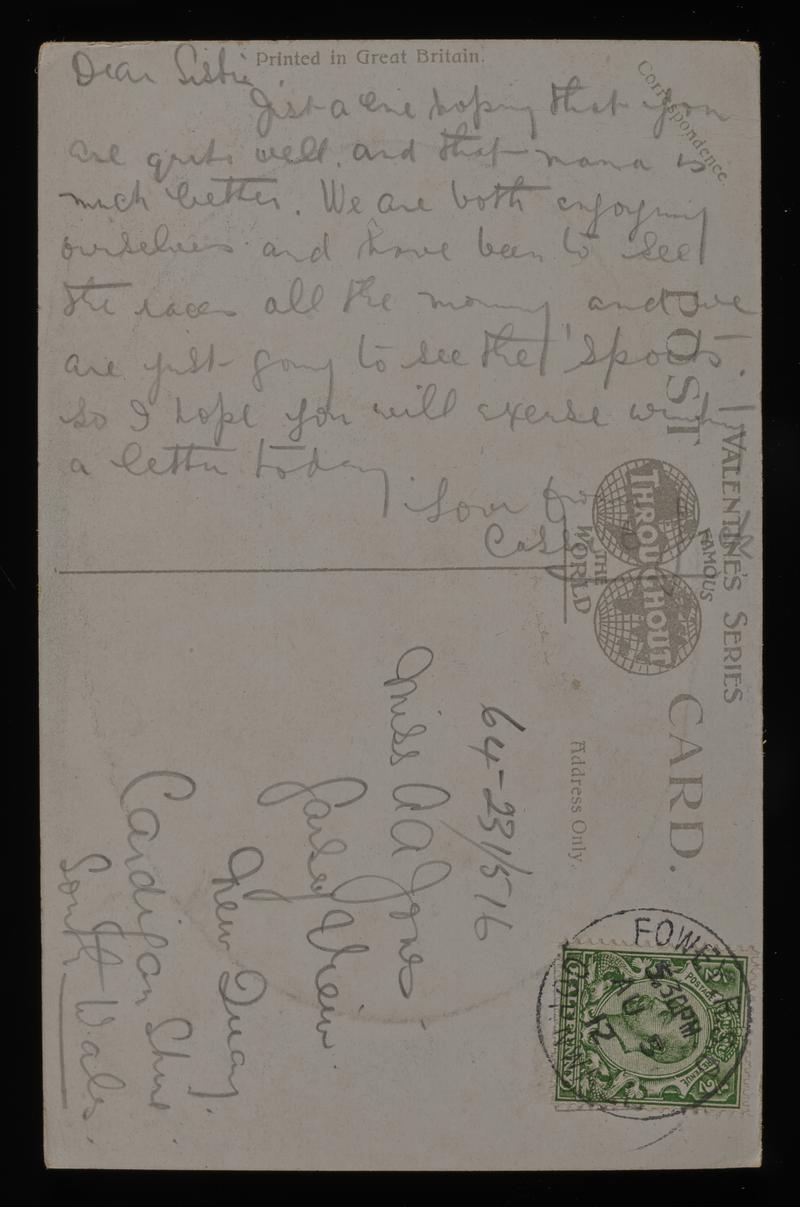 Printed in Great Britain.
Correspondence.
Dear Sistie,
Just a line hoping that you
are quite well. and that mama is
much better. We are both enjoying
ourselves and have been to see
the races all the morning and we
are just going to see the 'Sports'.
so I hope you will excuse
a letter today
Love
VALENTINE'S SERIES
FAMOUS
THROUGHOUT
THE
WORLD
POST CARD.
Address Only.
64-231/516
Miss A A Jones
View.
New Quay.
Cardigan Shire.
South Wales.
FOWEY
5.30PM
AU 3
12
CORNWALL
POSTAGE
REVENUE